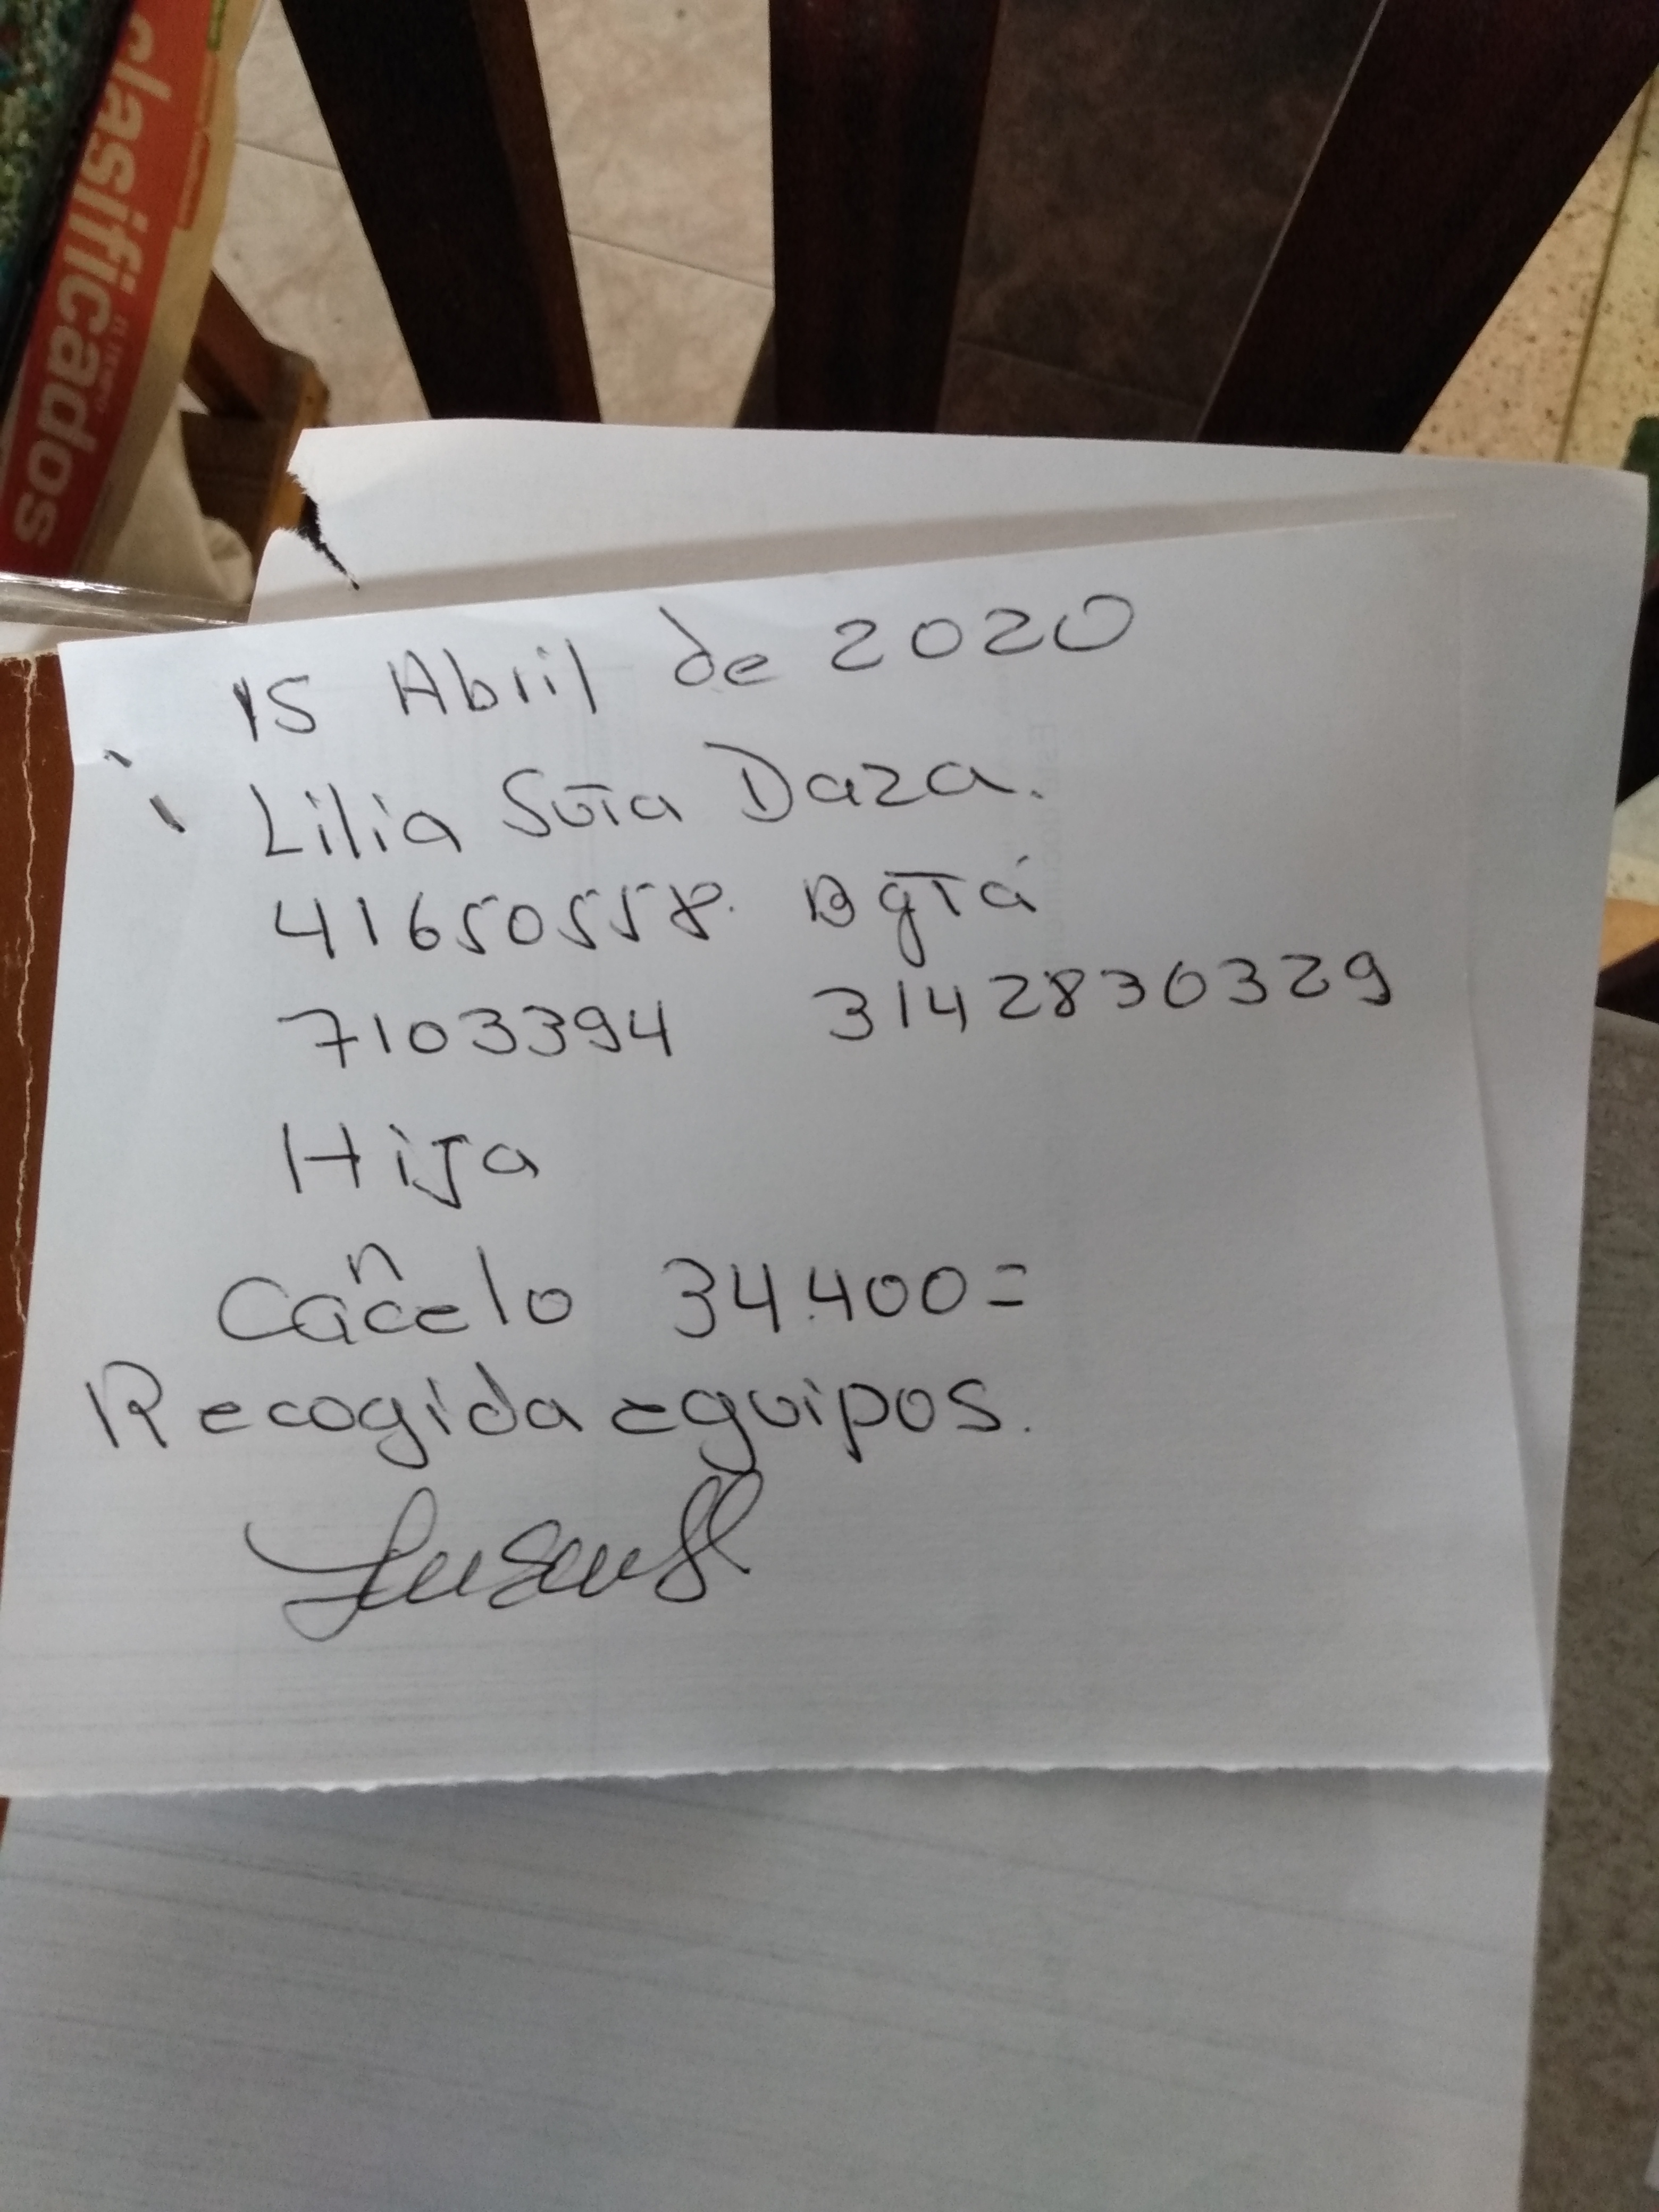 clasificados
EL TIEMPO
15 Abril de 2020
Lilia Sota Daza.
41650558. Bgtá
7103394 3142830329
Hija
Cancelo 34.400=
Recogida equipos.